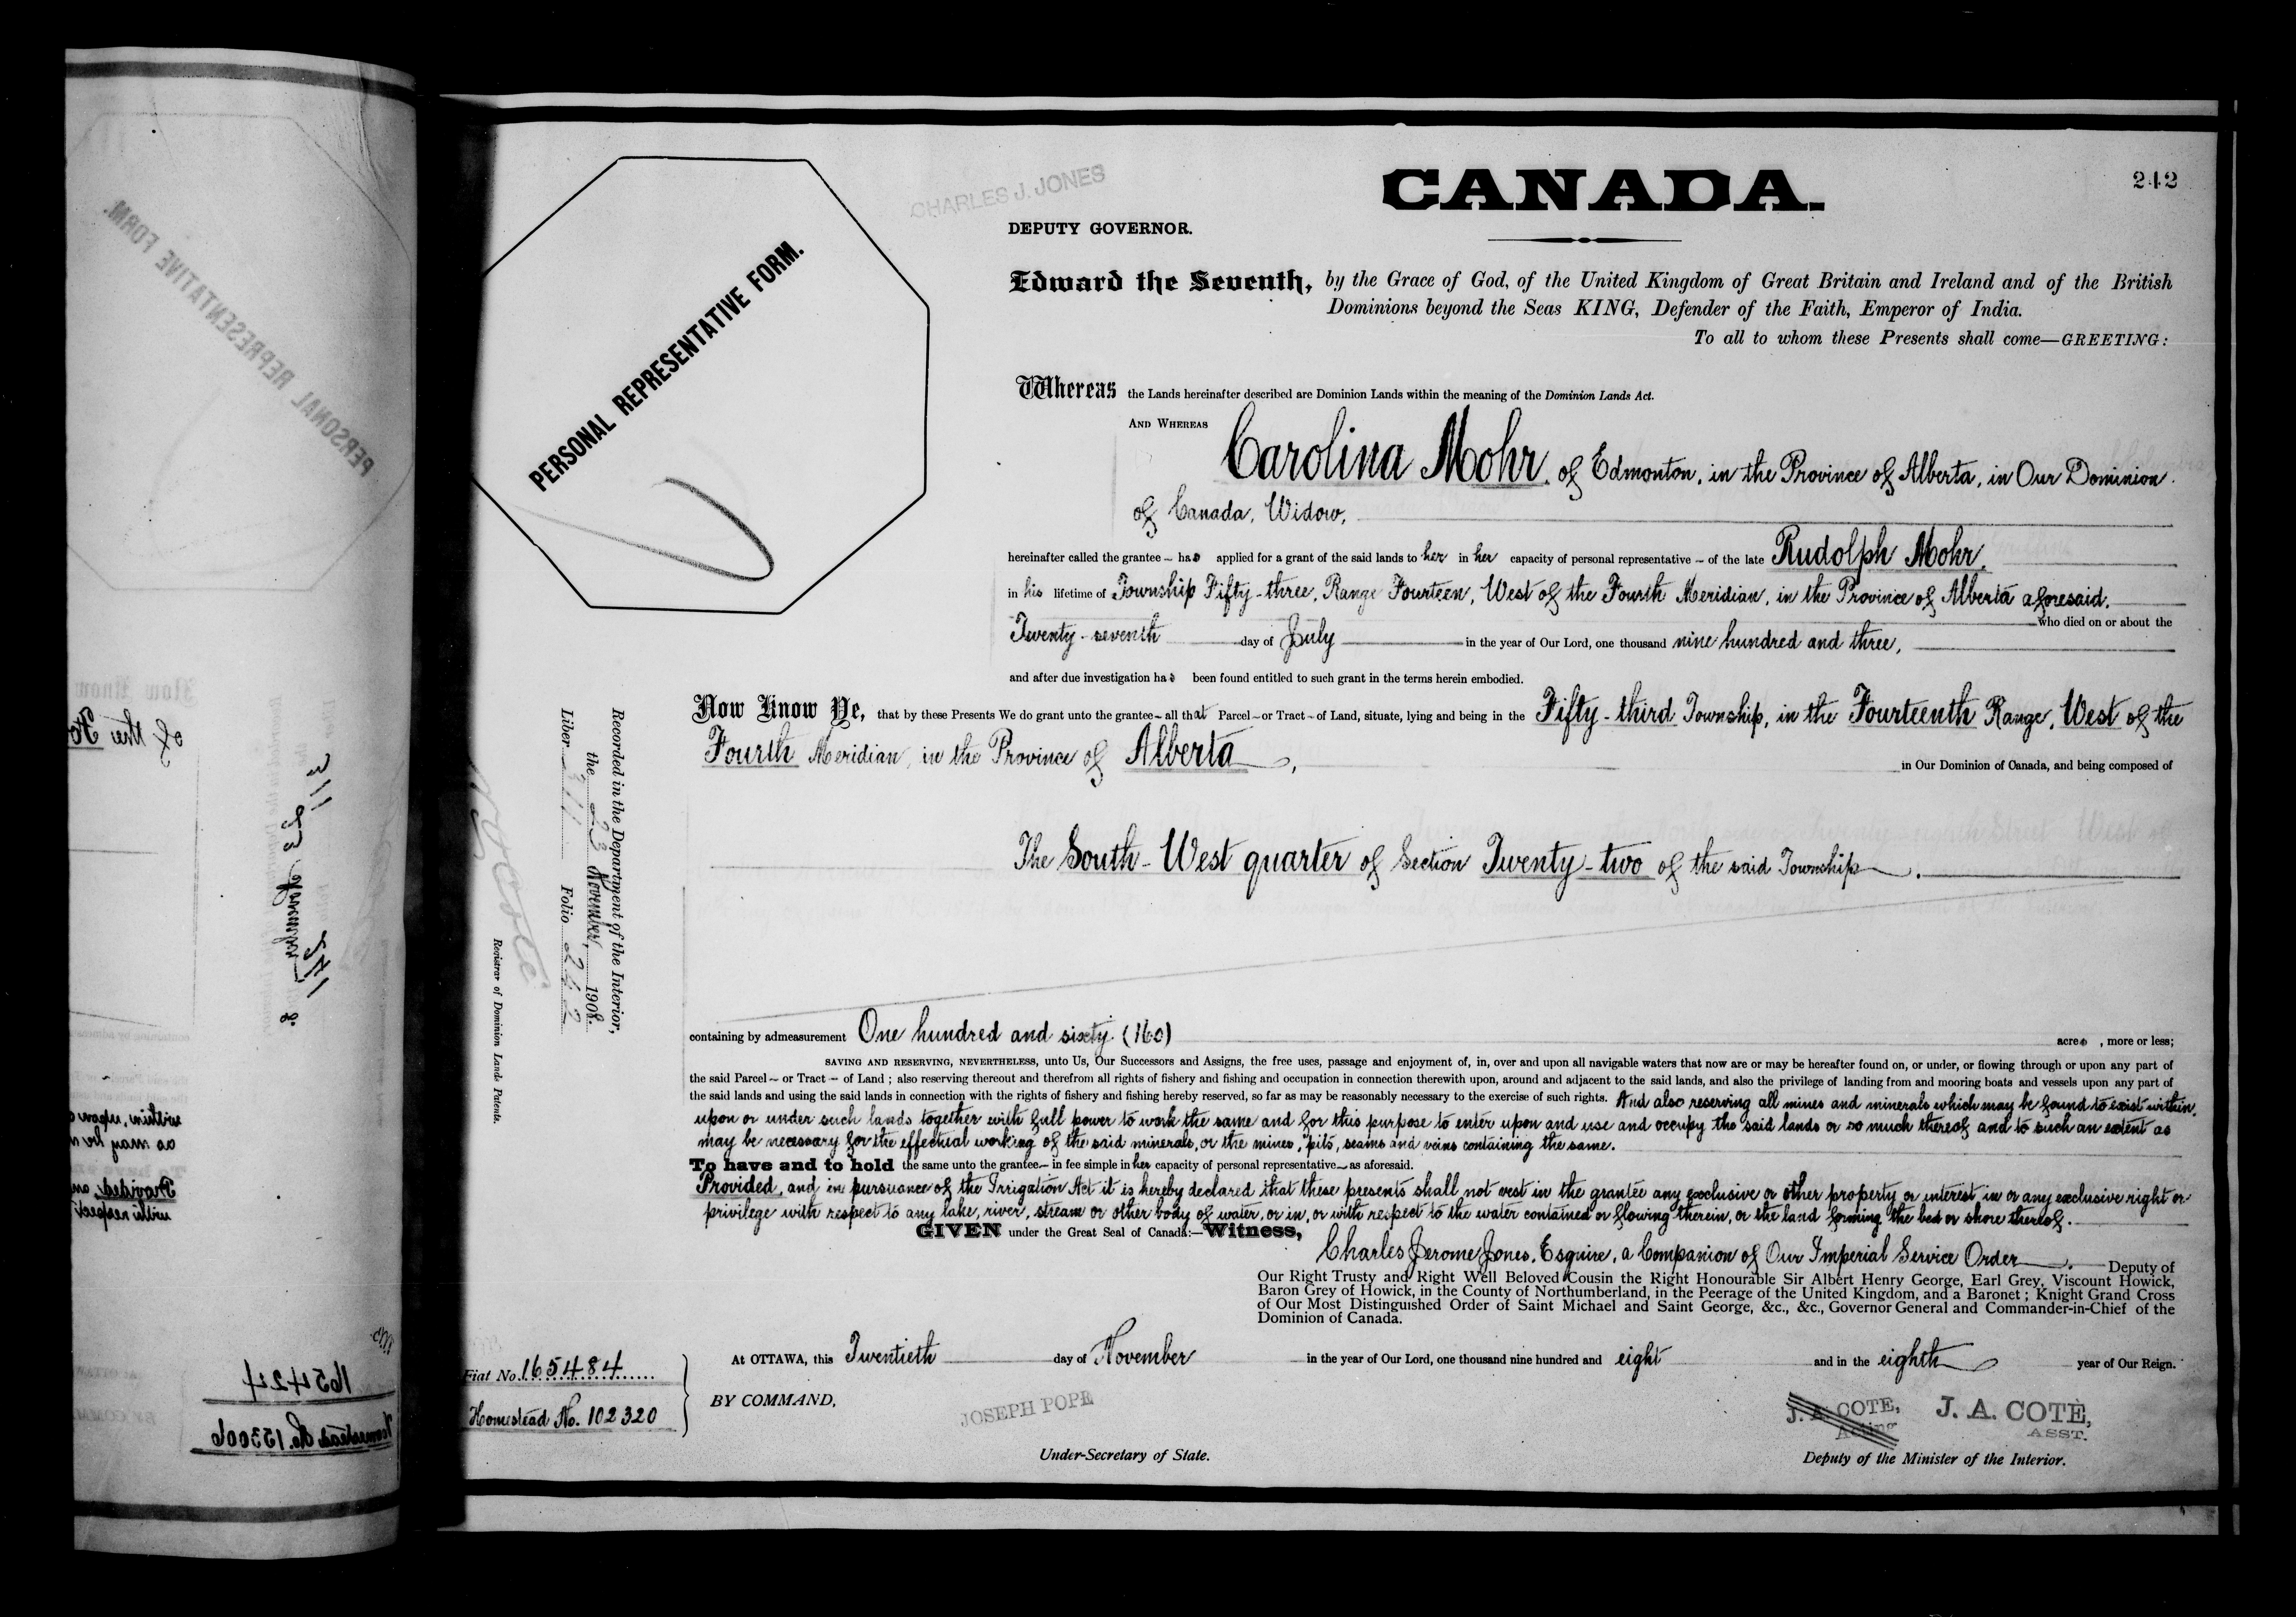 CHARLES J. JONES
CANADA.
242
DEPUTY GOVERNOR.
PERSONAL REPRESENTATIVE FORM.
Edward the Seventh, by the Grace of God, of the United Kingdom of Great Britain and Ireland and of the British
Dominions beyond the Seas KING, Defender of the Faith, Emperor of India.
To all to whom these Presents shall come—GREETING:
Whereas the Lands hereinafter described are Dominion Lands within the meaning of the Dominion Lands Act.
AND WHEREAS
Carolina Mohr, of Edmonton, in the Province of Alberta, in Our Dominion
of Canada, Widow,
hereinafter called the grantee – has applied for a grant of the said lands to her in her capacity of personal representative – of the late Rudolph Mohr,
in his lifetime of Township Fifty-three, Range Fourteen, West of the Fourth Meridian, in the Province of Alberta aforesaid,
who died on or about the
Twenty-seventh day of July in the year of Our Lord, one thousand nine hundred and three,
and after due investigation has been found entitled to such grant in the terms herein embodied.
Now Know Ye, that by these Presents We do grant unto the grantee – all that Parcel – or Tract – of Land, situate, lying and being in the Fifty-third Township, in the Fourteenth Range, West of the
Fourth Meridian, in the Province of Alberta,
in Our Dominion of Canada, and being composed of
The South-West quarter of Section Twenty-two of the said Township.
Recorded in the Department of the Interior,
the 23 November, 1908.
Liber 311 Folio 242
Registrar of Dominion Lands Patents.
containing by admeasurement One hundred and sixty (160) acres, more or less;
SAVING AND RESERVING, NEVERTHELESS, unto Us, Our Successors and Assigns, the free uses, passage and enjoyment of, in, over and upon all navigable waters that now are or may be hereafter found on, or under, or flowing through or upon any part of
the said Parcel – or Tract – of Land ; also reserving thereout and therefrom all rights of fishery and fishing and occupation in connection therewith upon, around and adjacent to the said lands, and also the privilege of landing from and mooring boats and vessels upon any part of
the said lands and using the said lands in connection with the rights of fishery and fishing hereby reserved, so far as may be reasonably necessary to the exercise of such rights. And also reserving all mines and minerals which may be found to exist within,
upon or under such lands together with full power to work the same and for this purpose to enter upon and use and occupy the said lands or so much thereof and to such an extent as
may be necessary for the effectual working of the said minerals, or the mines, pits, seams and veins containing the same.
To have and to hold the same unto the grantee – in fee simple in her capacity of personal representative – as aforesaid.
Provided, and in pursuance of the Irrigation Act it is hereby declared that these presents shall not vest in the grantee any exclusive or other property or interest in or any exclusive right or
privilege with respect to any lake, river, stream or other body of water, or in, or with respect to the water contained or flowing therein, or the land forming the bed or shore thereof.
GIVEN under the Great Seal of Canada:—Witness,
Charles Jerome Jones, Esquire, a Companion of Our Imperial Service Order. Deputy of
Our Right Trusty and Right Well Beloved Cousin the Right Honourable Sir Albert Henry George, Earl Grey, Viscount Howick,
Baron Grey of Howick, in the County of Northumberland, in the Peerage of the United Kingdom, and a Baronet ; Knight Grand Cross
of Our Most Distinguished Order of Saint Michael and Saint George, &c., &c., Governor General and Commander-in-Chief of the
Dominion of Canada.
At OTTAWA, this Twentieth day of November in the year of Our Lord, one thousand nine hundred and eight and in the eighth year of Our Reign.
Fiat No. 165484
Homestead No. 102320
BY COMMAND,
JOSEPH POPE
Under-Secretary of State.
J. A. COTE,
Acting
J. A. COTE,
ASST.
Deputy of the Minister of the Interior.